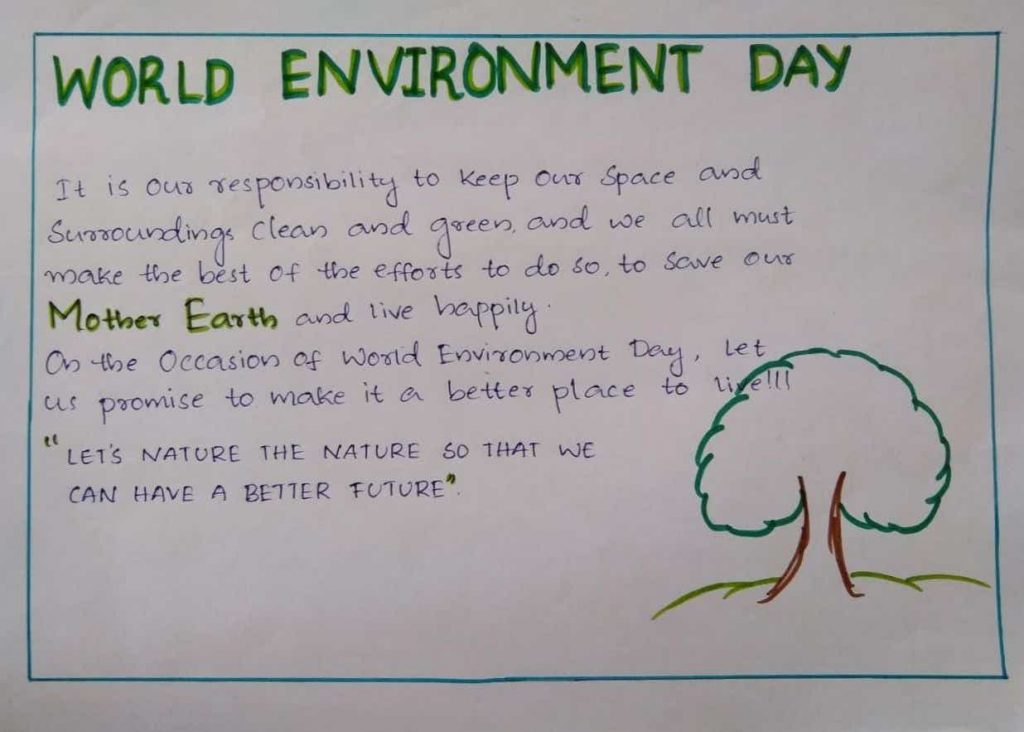 WORLD ENVIRONMENT DAY
It is our responsibility to keep our space and
Surroundings clean and green, and we all must
make the best of the efforts to do so, to save our
Mother Earth and live happily.
On the Occasion of World Environment Day, let
us promise to make it a better place to live!!!
"LET'S NATURE THE NATURE SO THAT WE
CAN HAVE A BETTER FUTURE".